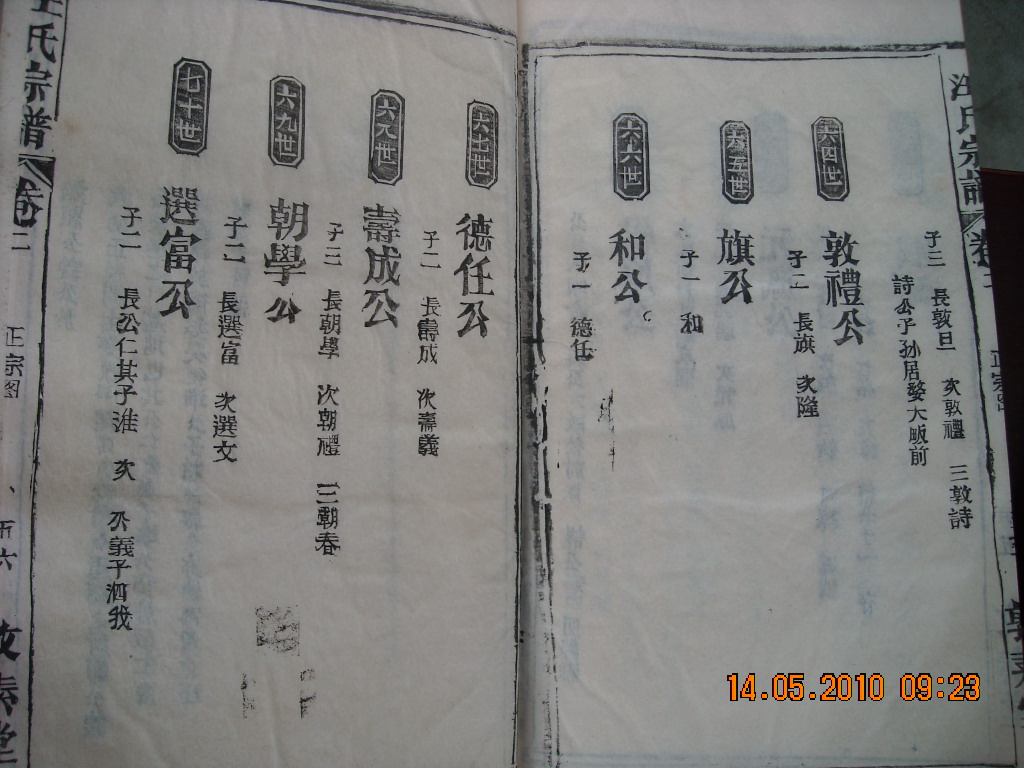 汪氏宗譜
卷二
正宗图
子三 長敦旦 次敦禮 三敦詩
詩公子孫居婺大畈前
六四世
敦禮公
子二 長旗 次隆
六五世
旗公
子一 和
六六世
和公
子一 德任
六七世
德任公
子二 長壽成 次壽義
六八世
壽成公
子三 長朝學 次朝禮 三朝春
六九世
朝學公
子二 長選富 次選文
七十世
選富公
子二 長公仁其子淮 次 公義子泗我
汪氏宗譜
卷二
正宗图
五六
14.05.2010 09:23